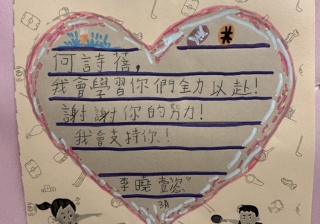 何詩蓓，
我會學習你們全力以赴！
謝謝你的努力！
我會支持你！
李曉壹
3A